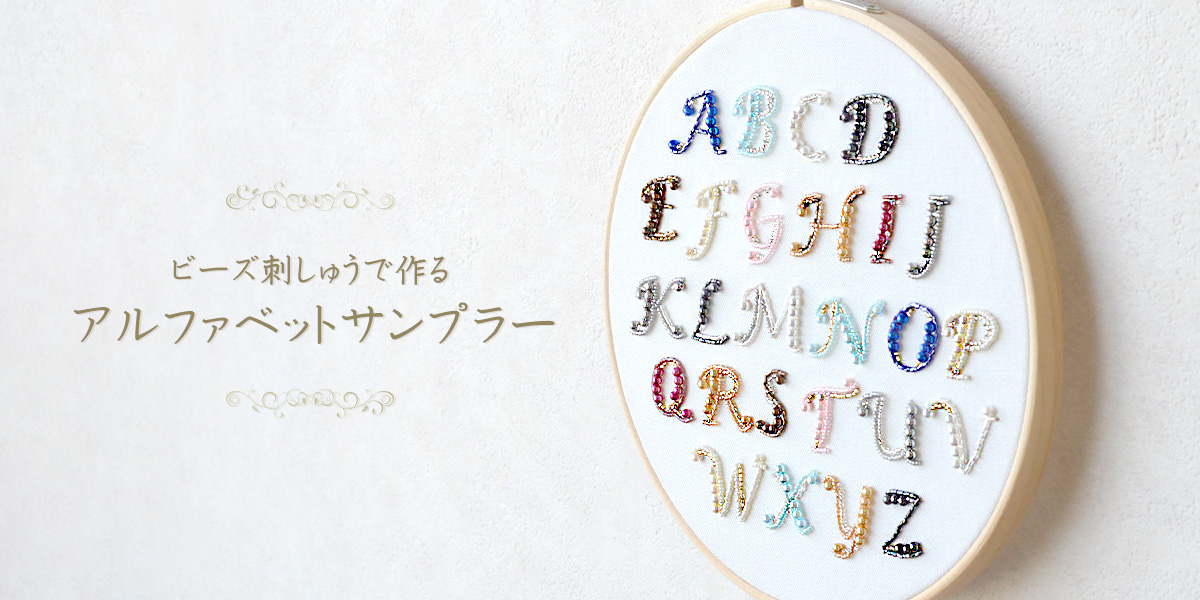 ビーズ刺しゅうで作る
アルファベットサンプラー
A B C D
E F G H I J
K L M N O P
Q R S T U V
W X Y Z